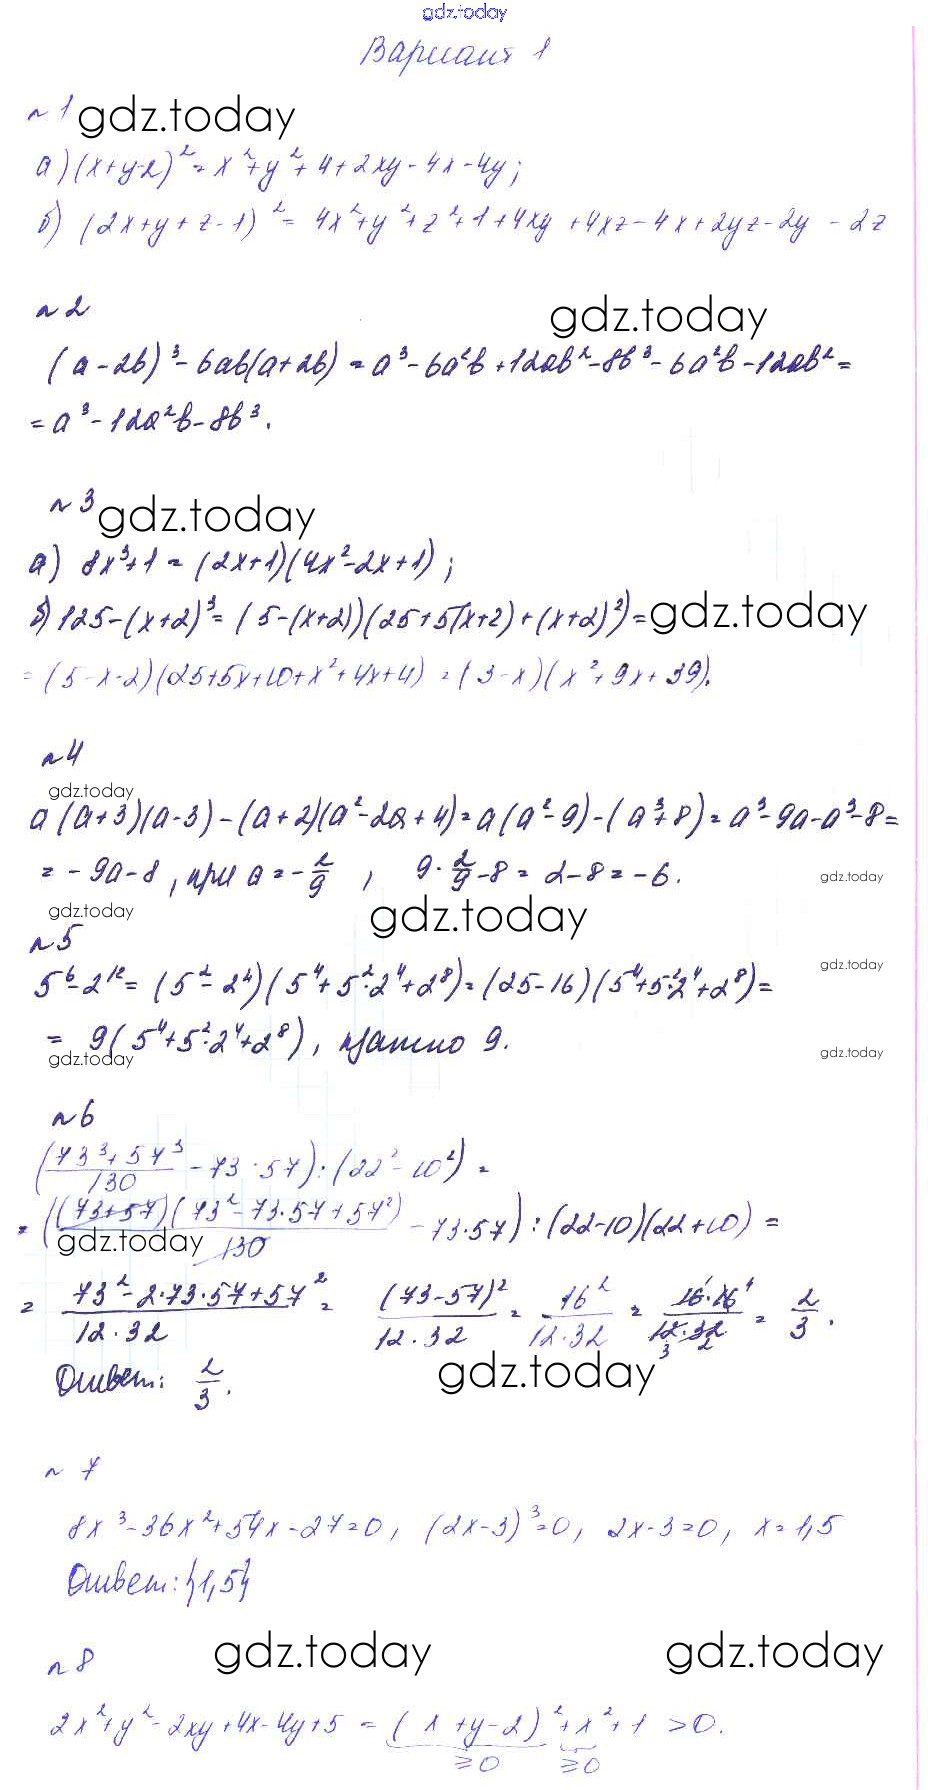 gdz.today
Вариант 1
№1 gdz.today
а) (x+y-2)² = x²+y²+4+2xy-4x-4y;
б) (2x+y+z-1)² = 4x²+y²+z²+1+4xy+4xz-4x+2yz-2y-2z
№2 gdz.today
(a-2b)³-6ab(a+2b) = a³-6a²b+12ab²-8b³-6a²b-12ab² =
= a³-12a²b-8b³.
№3 gdz.today
а) 8x³+1 = (2x+1)(4x²-2x+1);
б) 125-(x+2)³ = (5-(x+2))(25+5(x+2)+(x+2)²) = gdz.today
= (5-x-2)(25+5x+10+x²+4x+4) = (3-x)(x²+9x+39).
№4
gdz.today
a(a+3)(a-3)-(a+2)(a²-2a+4) = a(a²-9)-(a³+8) = a³-9a-a³-8 =
= -9a-8, при a = -2/9, 9·2/9-8 = 2-8 = -6. gdz.today
gdz.today gdz.today
№5 gdz.today
5⁶-2¹² = (5²-2⁴)(5⁴+5²·2⁴+2⁸) = (25-16)(5⁴+5²·2⁴+2⁸) =
= 9(5⁴+5²·2⁴+2⁸), кратно 9.
gdz.today gdz.today
№6
((73³+57³)/130 - 73·57):(22²-10²) =
= ((73+57)(73²-73·57+57²)/130 - 73·57):(22-10)(22+10) =
gdz.today
= (73²-2·73·57+57²)/(12·32) = (73-57)²/(12·32) = 16²/(12·32) = (16·16)/(12·32) = 2/3.
Ответ: 2/3. gdz.today
№7
8x³-36x²+54x-27=0, (2x-3)³=0, 2x-3=0, x=1,5
Ответ: {1,5}
№8 gdz.today gdz.today
2x²+y²-2xy+4x-4y+5 = (x+y-2)²+x²+1 >0.
≥0 ≥0